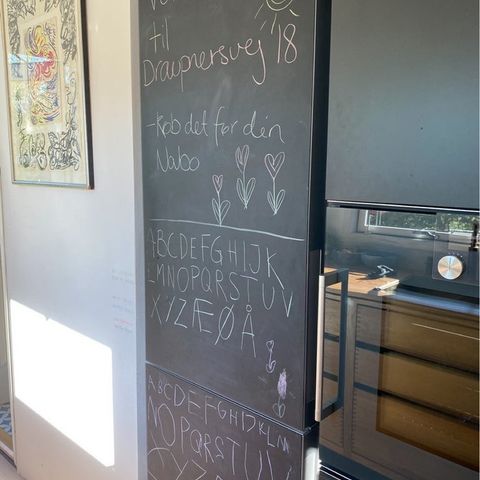 til
Draupnersvej 18
-Køb det før din
Nabo
ABCDEFGHIJK
LMNOPQRSTUV
XYZÆØÅ
ABCDEFGHIJKLM
NOPQRSTUV